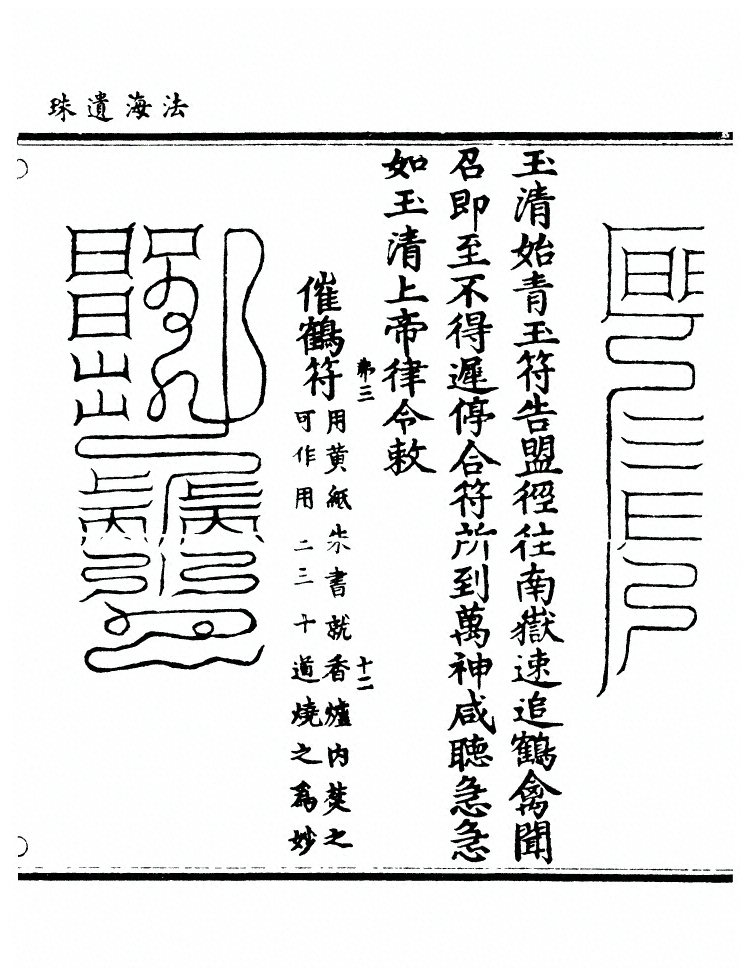 法海遺珠
玉清始青玉符告盟徑往南嶽速追鶴禽聞
召即至不得遲停合符所到萬神咸聽急急
如玉清上帝律令敕
第三
十二
催鶴符
用黃紙朱書就香爐內焚之
可作用二三十道燒之爲妙